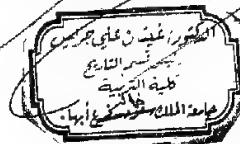 الدكتور/ غيثان علي جريس
رئيس قسم التاريخ
كلية التربية
جامعة الملك سعود فرع أبها